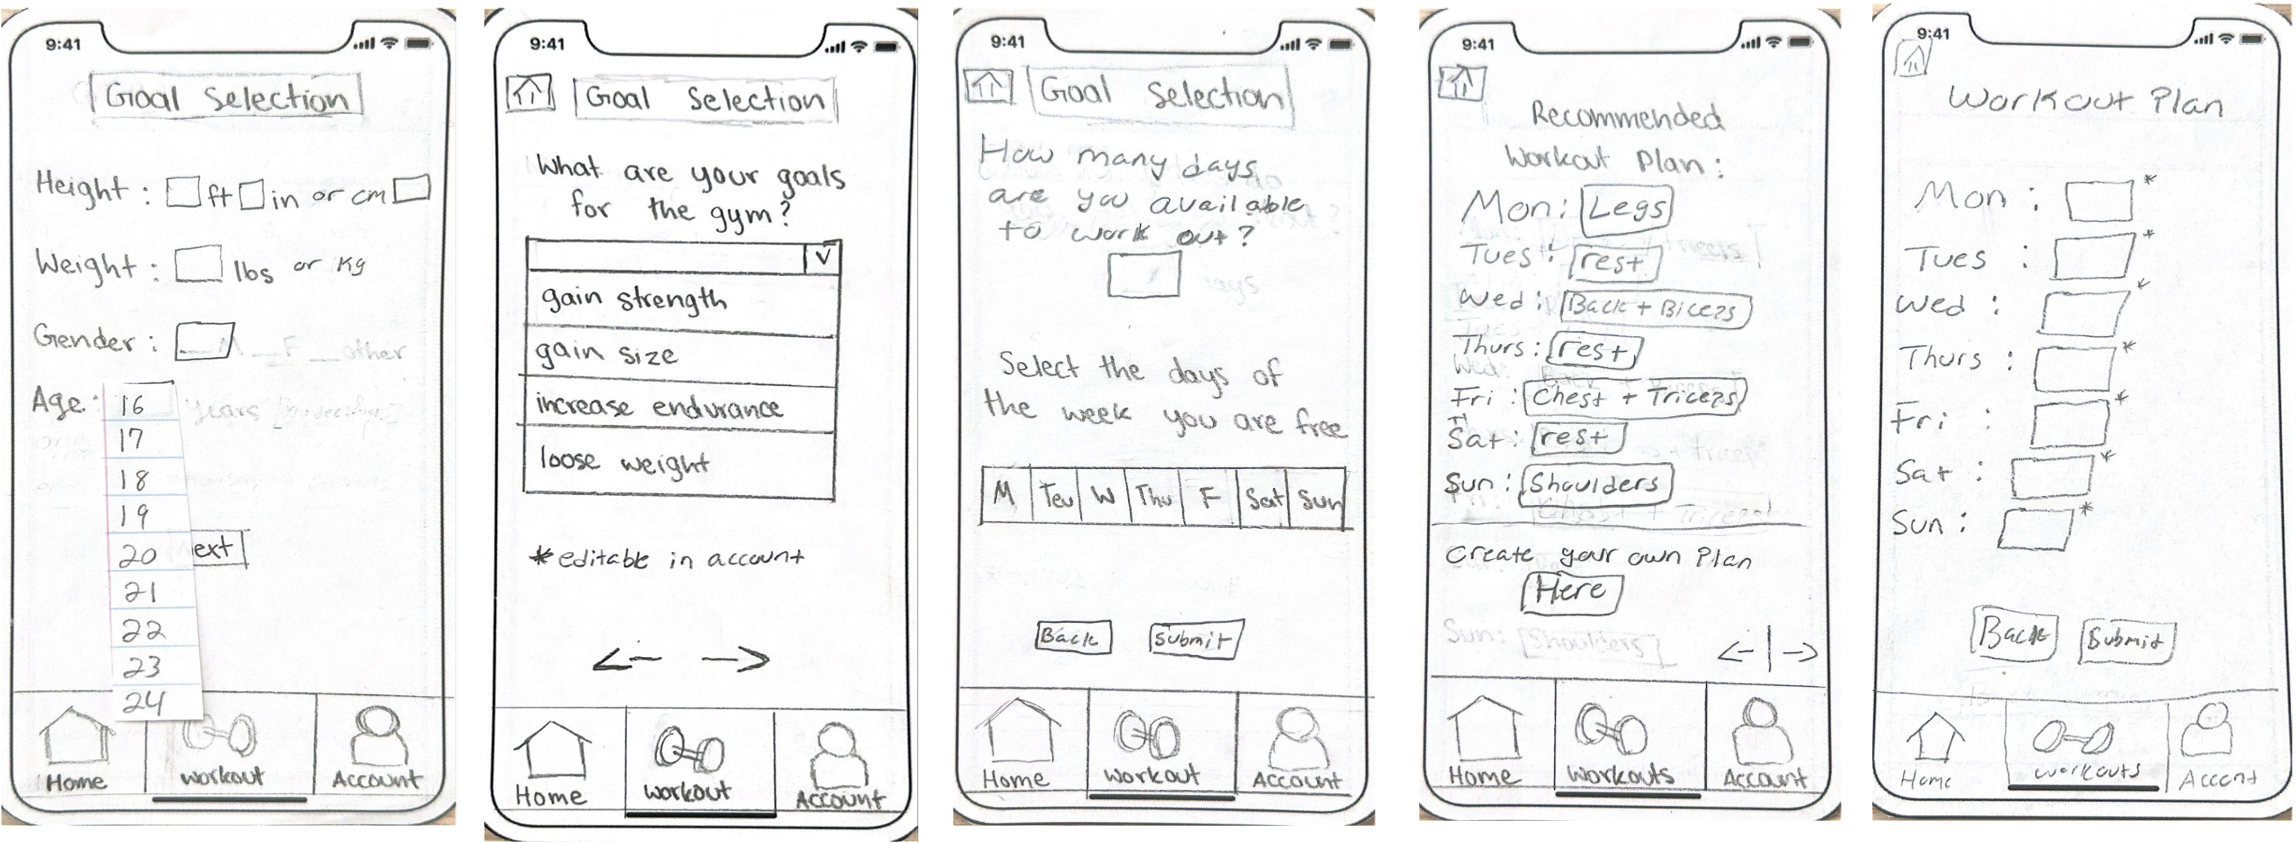 9:41
Goal Selection
Height : ft in or cm
Weight : lbs or kg
Gender : M F other
Age: 16 years
17
18
19
20 ext
21
22
23
24
Home workout Account
9:41
Goal Selection
What are your goals
for the gym?
gain strength
gain size
increase endurance
loose weight
*editable in account
Home workout Account
9:41
Goal Selection
How many days
are you available
to work out?
days
Select the days of
the week you are free
M Teu W Thu F Sat Sun
Back Submit
Home workout Account
9:41
Recommended
Workout Plan :
Mon: Legs
Tues : rest
Wed : Back + Biceps
Thurs : rest
Fri : Chest + Triceps
Sat : rest
Sun : Shoulders
Create your own Plan
Here
Sun: Shoulders
Home Workouts Account
9:41
Workout Plan
Mon : *
Tues : *
Wed : *
Thurs : *
Fri : *
Sat : *
Sun : *
Back Submit
Home workouts Account